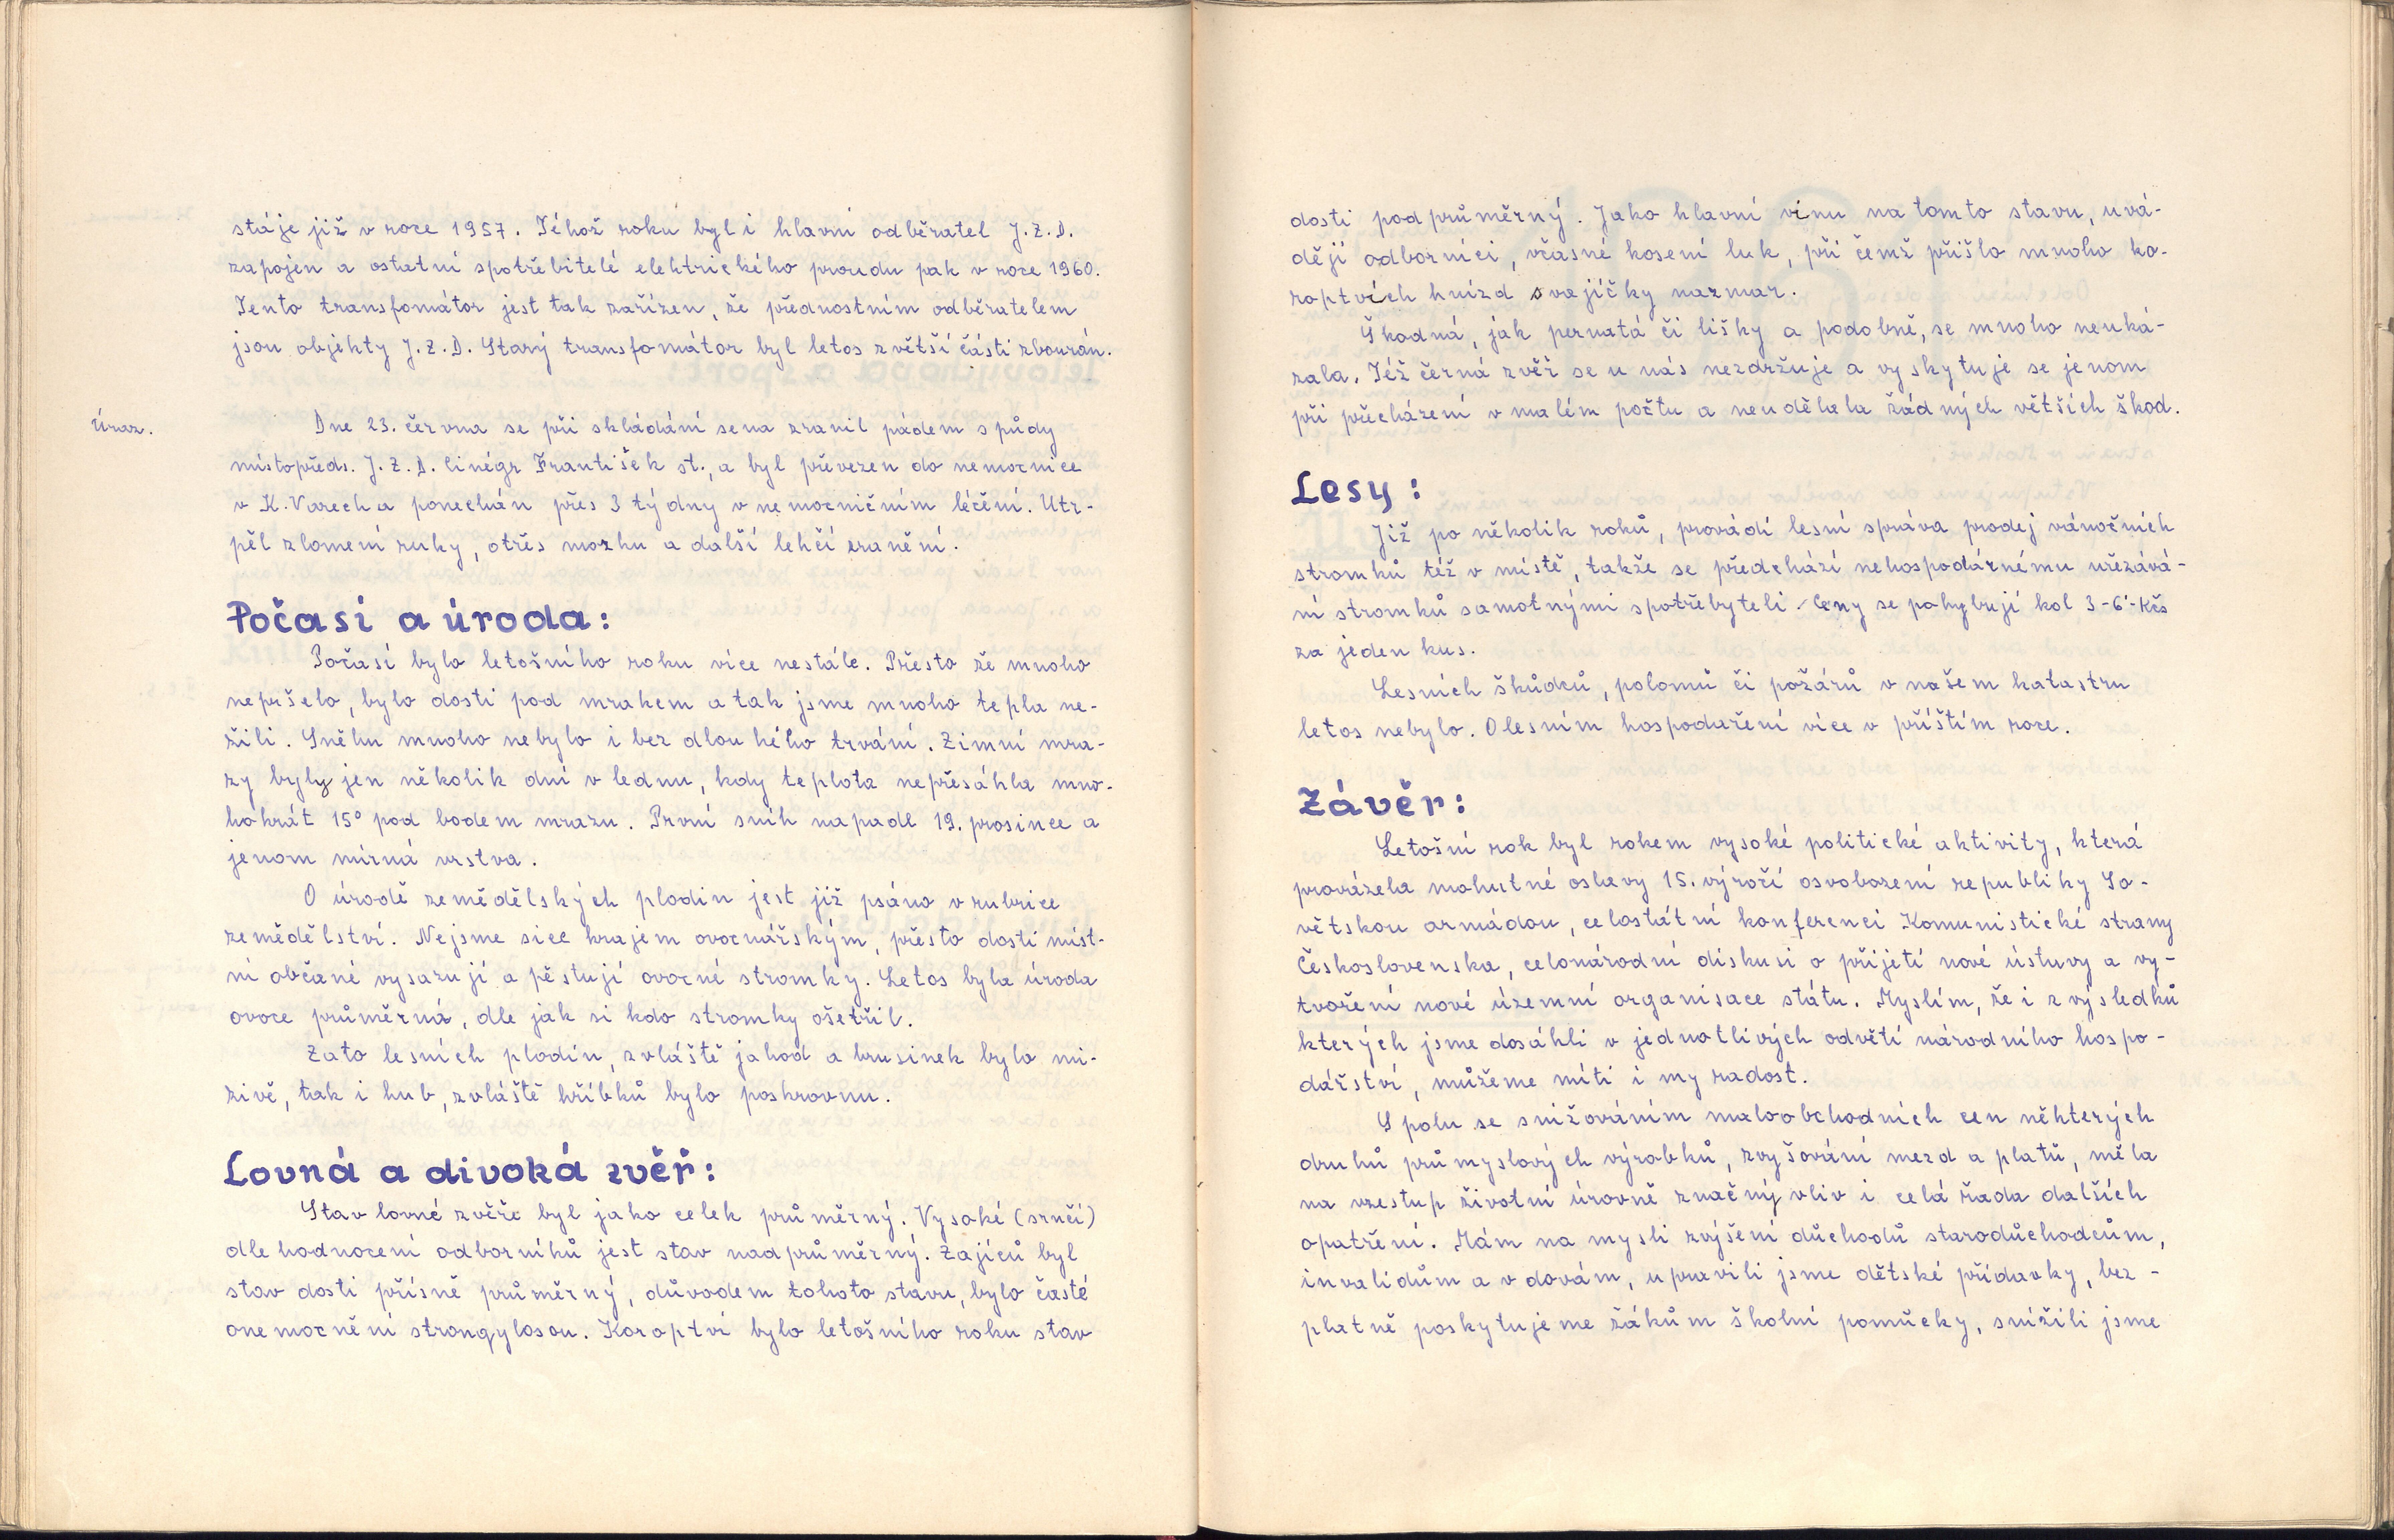 stáje již v roce 1957. Téhož roku byl i hlavní odběratel J.Z.D.
zapojen a ostatní spotřebitelé elektrického proudu pak v roce 1960.
Tento transfomátor jest tak zařízen, že přednostním odběratelem
jsou objekty J.Z.D. Starý transfomátor byl letos z větší části zbourán.
Úraz.
Dne 23. června se při skládání sena zranil pádem s půdy
místopředs. J.Z.D. Cinégr František st., a byl převezen do nemocnice
v K.Varech a ponechán přes 3 týdny v nemocničním léčění. Utr-
pěl zlomení ruky, otřes mozku a další lehčí zranění.
Počasí a úroda:
Počasí bylo letošního roku více nestálé. Přesto že mnoho
nepršelo, bylo dosti pod mrakem a tak jsme mnoho tepla ne-
žili. Sněhu mnoho nebylo i bez dlouhého trvání. Zimní mra-
zy byly jen několik dní v lednu, kdy teplota nepřesáhla mno-
hokrát 15° pod bodem mrazu. První sníh napadl 19. prosince a
jenom mírná vrstva.
O úrodě zemědělských plodin jest již psáno v rubrice
zemědělství. Nejsme sice krajem ovocnářským, přesto dosti míst-
ní občané vysazují a pěstují ovocné stromky. Letos byla úroda
ovoce průměrná, dle jak si kdo stromky ošetřil.
Zato lesních plodin, zvláště jahod a brusinek bylo mi-
zivě, tak i hub, zvláště hříbků bylo poskrovnu.
Lovná a divoká zvěř:
Stav lovné zvěře byl jako celek průměrný. Vysoké (srnčí)
dle hodnocení odborníků jest stav nadprůměrný. Zajíců byl
stav dosti přísně průměrný, důvodem tohoto stavu, bylo časté
onemocnění strongylosou. Koroptví bylo letošního roku stav
dosti podprůměrný. Jako hlavní vinu na tomto stavu, uvá-
dějí odborníci, včasné kosení luk, při čemž přišlo mnoho ko-
roptvích hnízd s vajíčky nazmar.
Škodná, jak pernatá či lišky a podobně, se mnoho neuká-
zala. Též černá zvěř se u nás nezdržuje a vyskytuje se jenom
při přecházení v malém počtu a neudělala žádných větších škod.
Lesy:
Již po několik roků, provádí lesní správa prodej vánočních
stromků též v místě, takže se předchází nehospodárnému uřezává-
ní stromků samotnými spotřebyteli. Ceny se pohybují kol 3-6'-Kčs
za jeden kus.
Lesních škůdců, polomů či požárů v našem katastru
letos nebylo. O lesním hospodaření více v příštím roce.
Závěr:
Letošní rok byl rokem vysoké politické aktivity, která
provázela mohutné oslavy 15. výročí osvobození republiky So-
větskou armádou, celostátní konferenci Komunistické strany
Československa, celonárodní diskusi o přijetí nové ústavy a vy-
tvoření nové územní organisace státu. Myslím, že i z výsledků
kterých jsme dosáhli v jednotlivých odvětí národního hospo-
dářství, můžeme míti i my radost.
Spolu se snižováním maloobchodních cen některých
druhů průmyslových výrobků, zvyšování mezd a platů, měla
na vzestup životní úrovně značný vliv i celá řada dalších
opatření. Mám na mysli zvýšení důchodů starodůchodcům,
invalidům a vdovám, upravili jsme dětské přídavky, bez-
platně poskytujeme žákům školní pomůcky, snížili jsme